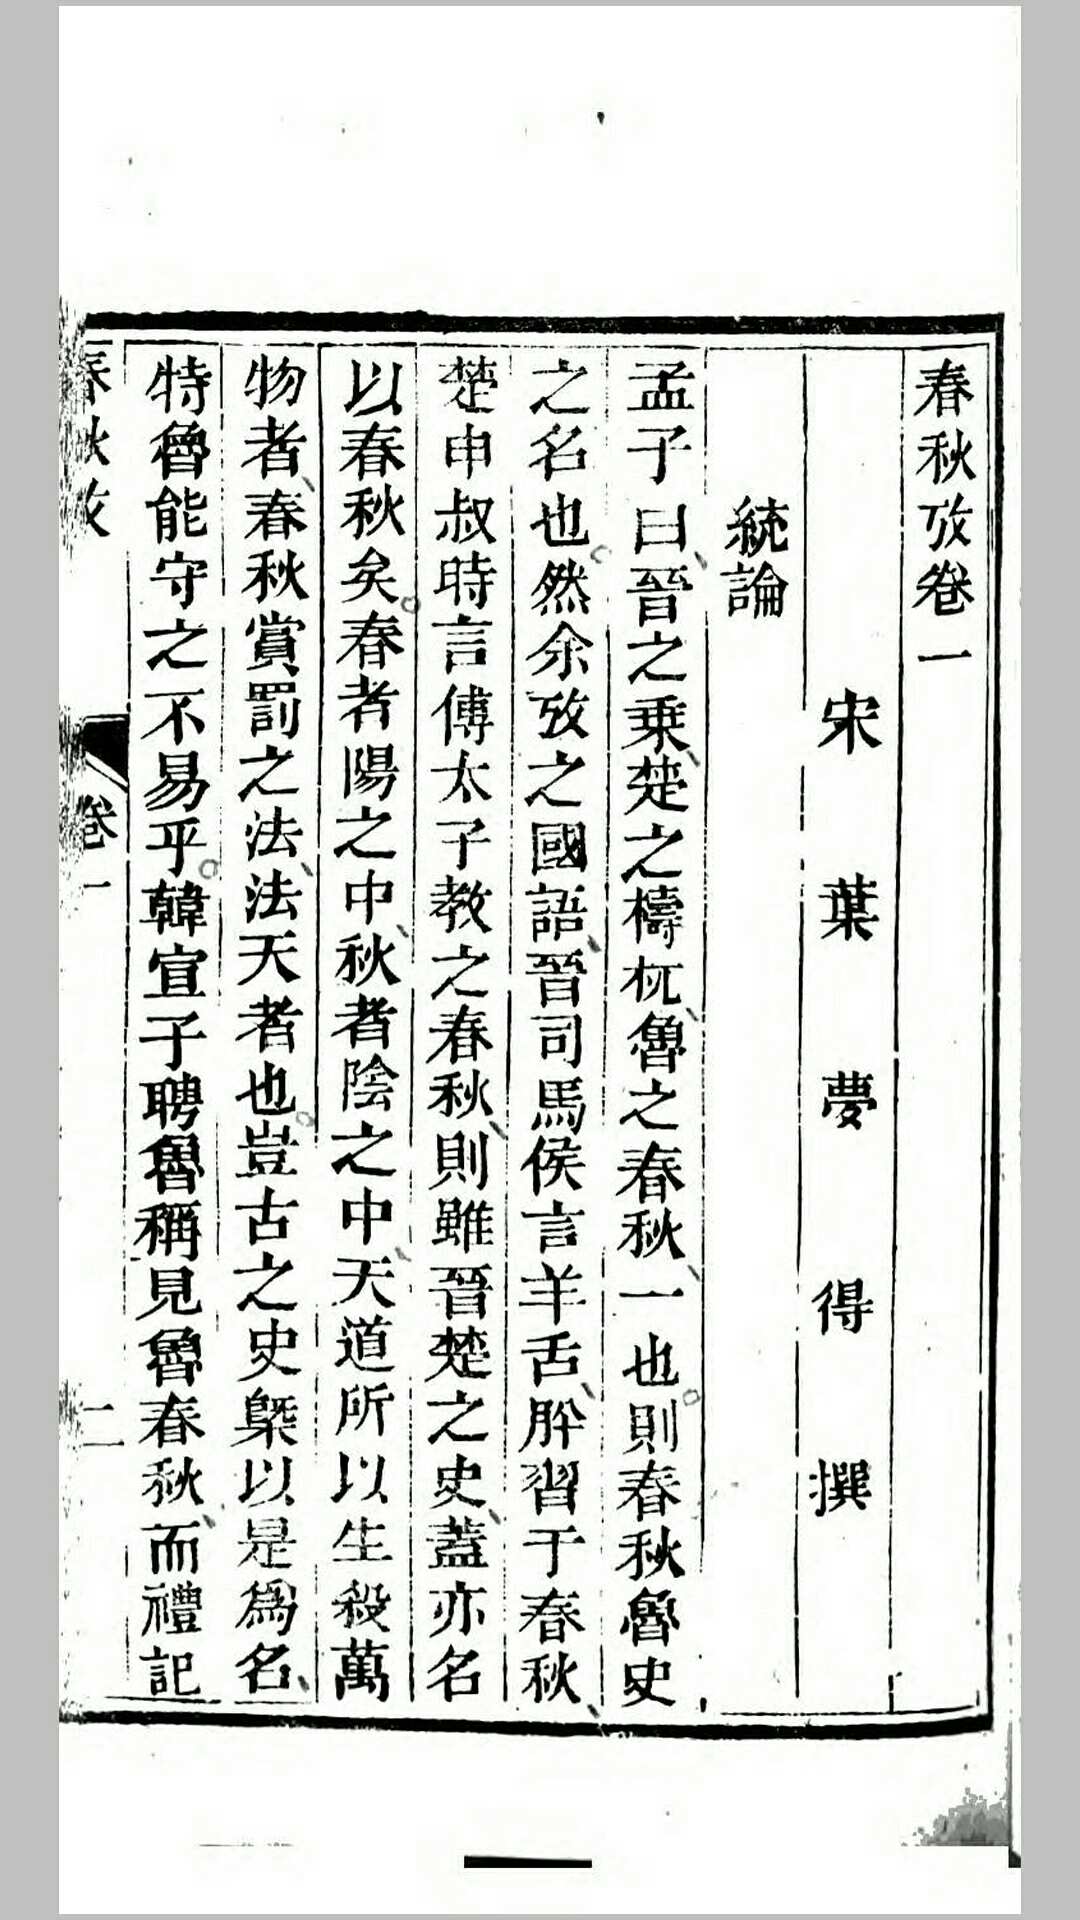 春秋攷卷一
宋葉夢得撰
統論
孟子曰晉之乗楚之檮杌魯之春秋一也則春秋魯史
之名也然余攷之國語晉司馬侯言羊舌肸習于春秋
楚申叔時言傅太子教之春秋則雖晉楚之史蓋亦名
以春秋矣春者陽之中秋者陰之中天道所以生殺萬
物者春秋賞罰之法法天者也豈古之史槩以是爲名
特魯能守之不易乎韓宣子聘魯稱見魯春秋而禮記
春秋攷 卷一 二